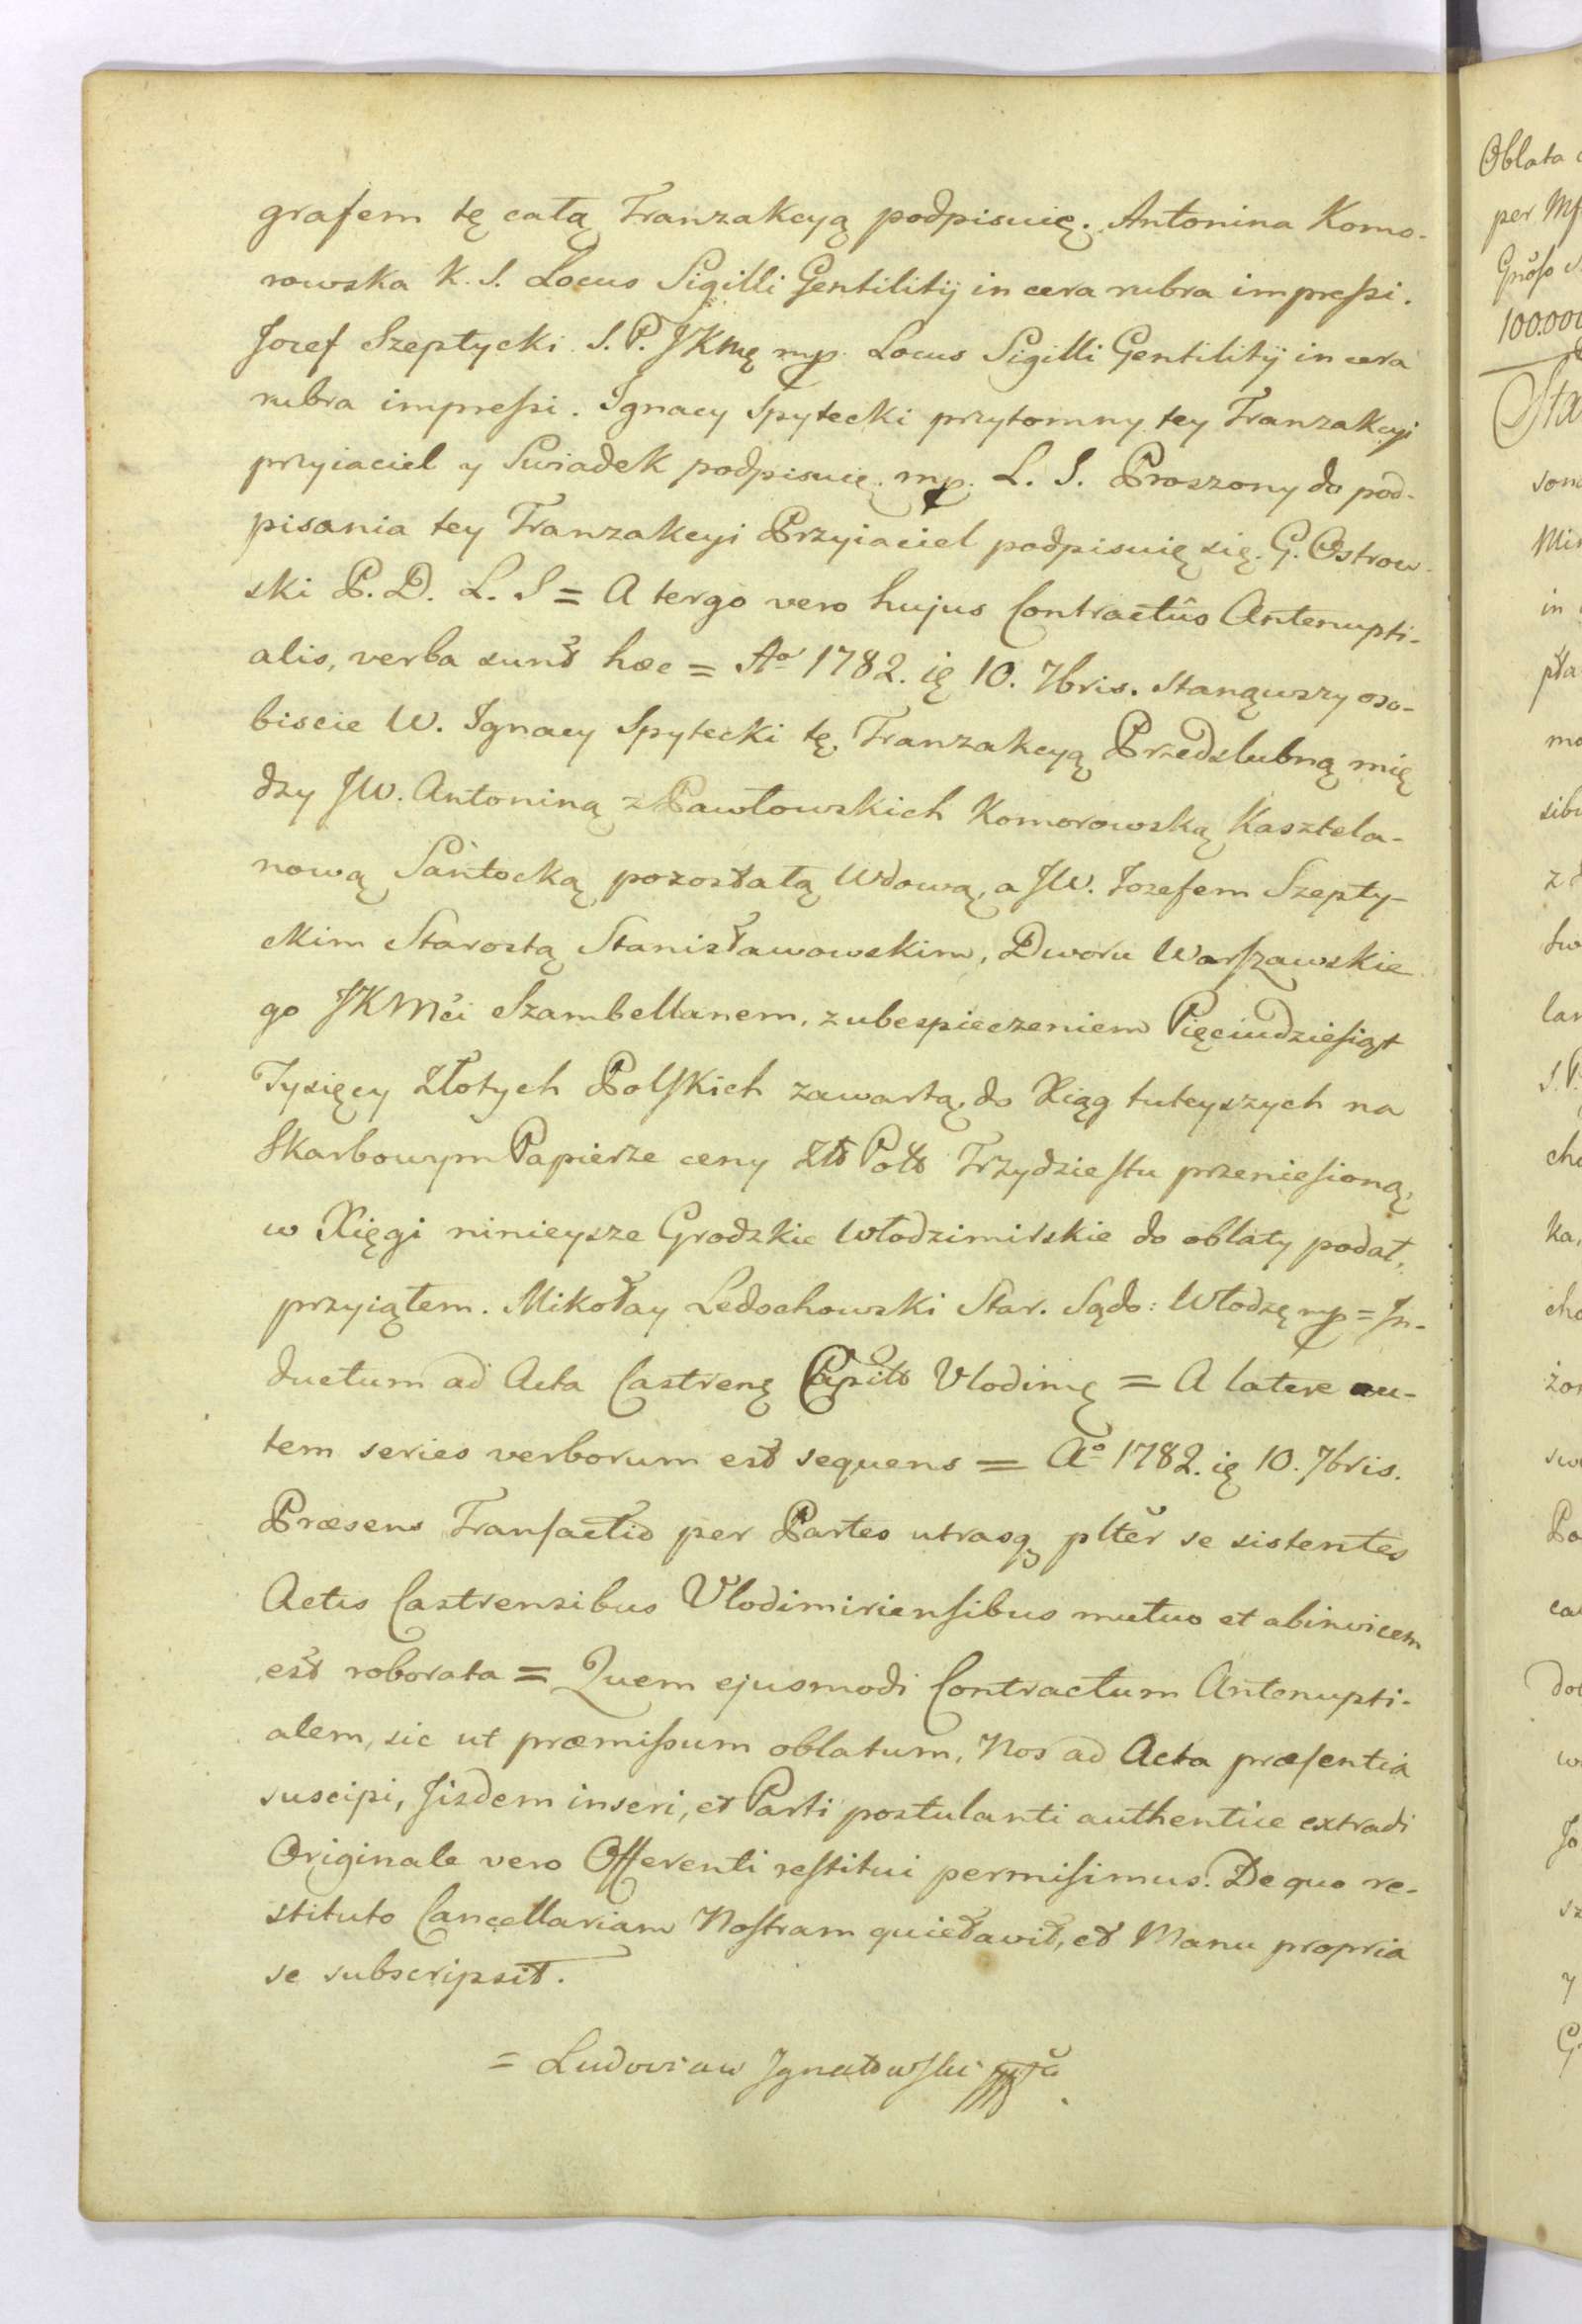 grafem tę całą Tranzakcyą podpisuię. Antonina Komo-
rowska K. S. Locus Sigilli Gentilitij in cera rubra impressi.
Jozef Szeptycki S. P. JKMę mp. Locus Sigilli Gentilitij in cera
rubra impressi. Ignacy Spytecki przytomny tey Tranzakcyi
przyiaciel y Swiadek podpisuię. mp. L. S. Proszony do pod-
pisania tey Tranzakcyi Przyiaciel podpisuię się. G. Ostrow-
ski P. D. L. S = A tergo vero hujus Contractûs Antenupti-
alis, verba sunt hæc = Aº 1782. ię 10. 7bris. Stanąwszy oso-
biscie W. Ignacy Spytecki tę Tranzakcyą Przedslubną mię
dzy JW. Antoniną z Pawłowskich Komorowską Kasztela-
nową Santocką pozostałą Wdową, a JW. Jozefem Szepty-
ckim Starostą Stanisławowskim, Dworu Warszawskie
go JKMći Szambellanem, z ubespieczeniem Pięciudziesiąt
Tysięcy Złotych Polskich zawartą, do Xiąg tuteyszych na
Skarbowym Papierze ceny Złt Polt Trzydziestu przeniesioną,
w Xięgi ninieysze Grodzkie Włodzimirskie do oblaty podał,
przyiąłem. Mikołay Ledochowski Star. Sądo: Włodzę mp = In-
ductum ad Acta Castrenę Capitt Vlodimę = A latere au-
tem series verborum est sequens = Aº 1782. ię 10. 7bris.
Præsens Transactio per Partes utrasq, pltěr se sistentes
Actis Castrensibus Vlodimiriensibus mutuo et abinvicem
est roborata = Quem ejusmodi Contractum Antenupti-
alem, sic ut præmissum oblatum, Nos ad Acta præsentia
suscipi, Jisdem inseri, et Parti postulanti authentice extradi
Originale vero Offerenti restitui permisimus. De quo re-
stituto Cancellariam Nostram quietavit, et Manu propria
se subscripsit.
= Ludovicus Ignatowski
Oblata
per
100.000